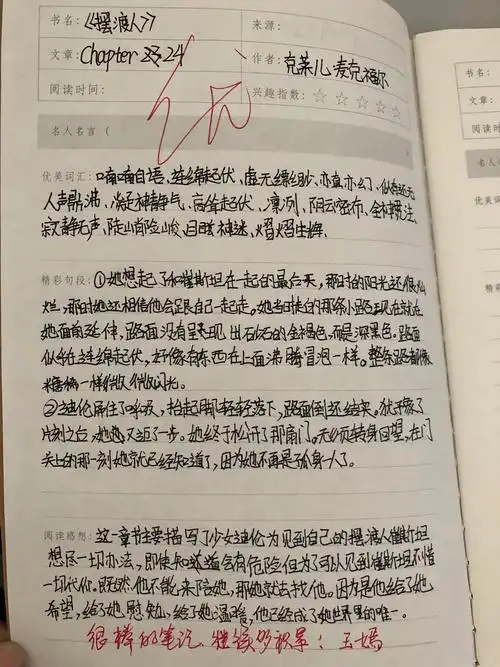 书名：《摆渡人》 来源：
文章：Chapter 23 24 作者：克莱儿 麦克福尔
阅读时间： 兴趣指数：☆☆☆☆☆
优
名人名言（
优美词汇：喃喃自语、连绵起伏、虚无缥缈、亦真亦幻、似有还无
人声鼎沸、凝神静气、高耸起伏、凛冽、阴云密布、全神贯注、
寂静无声、陡峭险峻、目眩神迷、熠熠生辉
精彩句段：①她想起了和崔斯坦在一起的最后一天，那时的阳光还很灿
烂，那时她还相信他会跟自己一起走。她当时走的那条小路现在就在
她面前延伸，路面没有呈现出砂石的金褐色，而是深黑色。路面
似乎在连绵起伏，好像有东西在上面沸腾冒泡一样。整条路都像
糖偏一样微微闪光。
②迪伦屏住了呼吸，抬起脚轻轻落下，路面倒还结实。犹豫了
片刻之后，她又迈了一步。她终于松开了那扇门。无须转身回望，在门
关上的那一刻她就已经知道了，因为她不再是孤身一人了。
阅读感想：这一章节主要描写了少女迪伦为见到自己的摆渡人崔斯坦
想尽一切办法，即使知道会有危险但为了可以见到崔斯坦不惜
一切代价。既然他不能来陪她，那她就去找他。因为是他给了她
希望，给了她慰勉，给了她温暖，他已经成了她世界里的唯一。
很棒的笔记，继续努积累！王嫣
书名：
文章：
阅读时
名人名
优美词
精彩